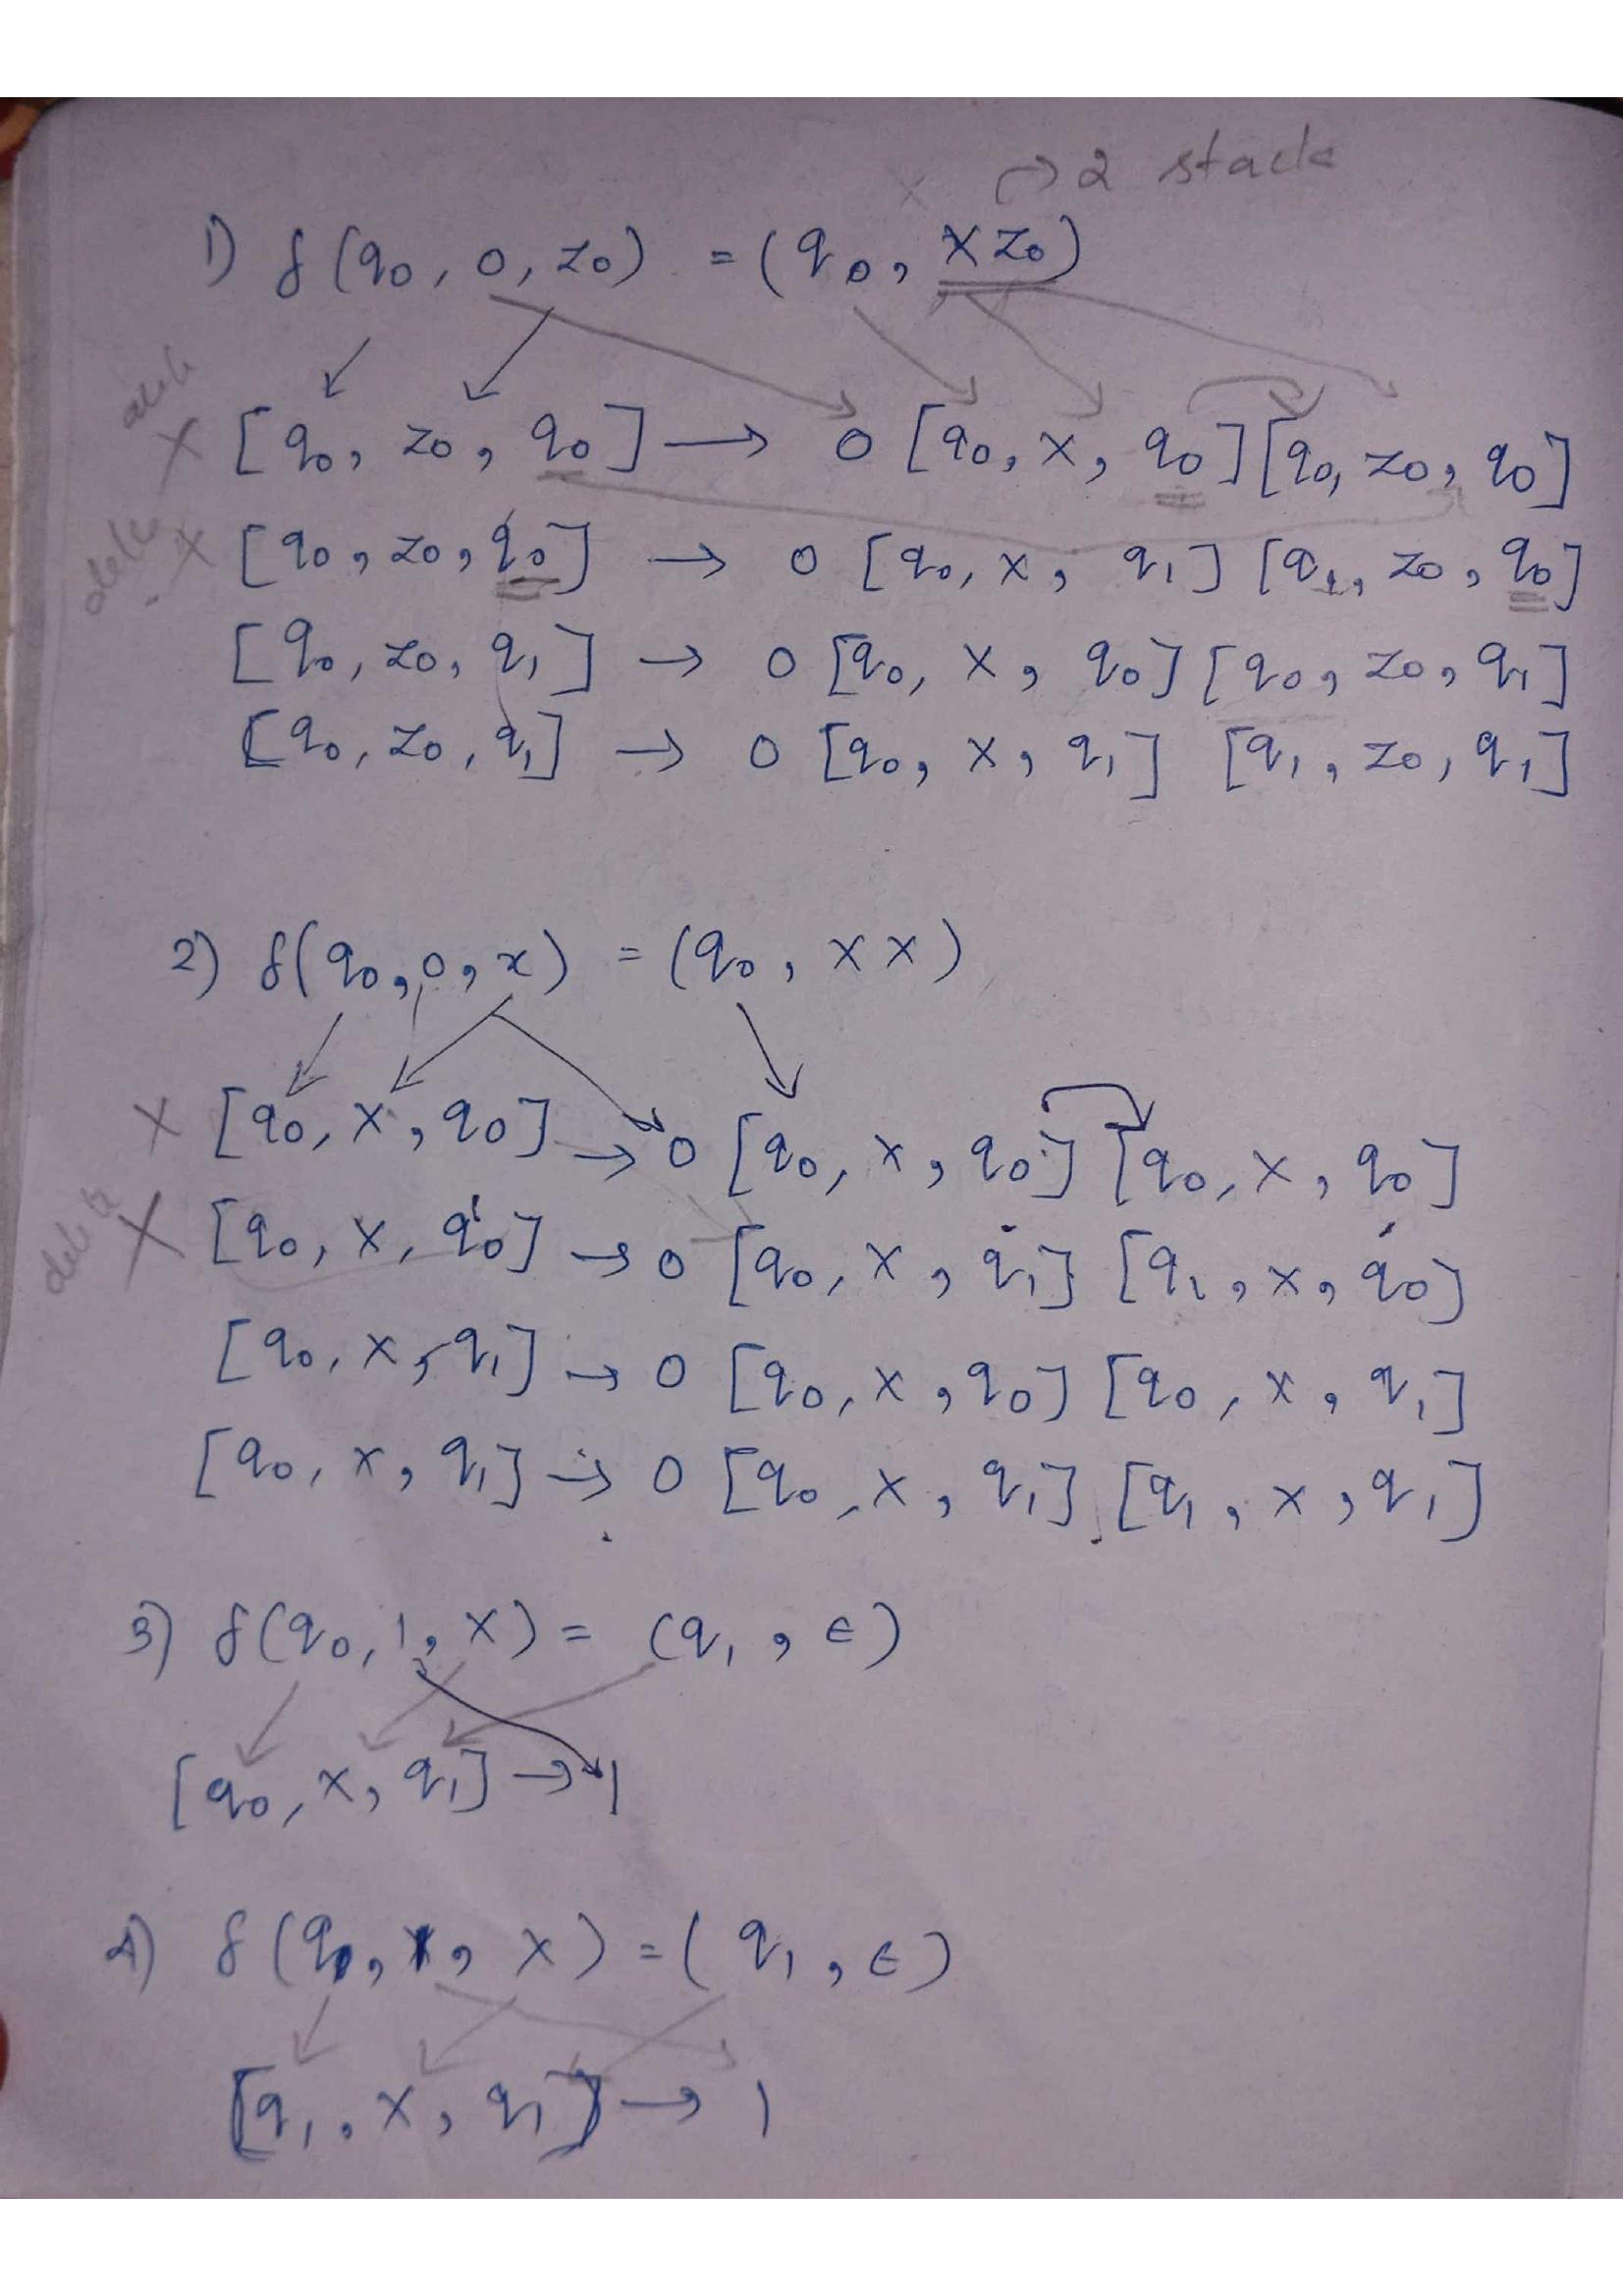 → 2 stack
1) δ(q₀, 0, z₀) = (q₀, xz₀)
x [q₀, z₀, q₀] → 0 [q₀, x, q₀] [q₀, z₀, q₀]
delete x [q₀, z₀, q₀] → 0 [q₀, x, q₁] [q₁, z₀, q₀]
[q₀, z₀, q₁] → 0 [q₀, x, q₀] [q₀, z₀, q₁]
[q₀, z₀, q₁] → 0 [q₀, x, q₁] [q₁, z₀, q₁]
2) δ(q₀, 0, x) = (q₀, xx)
x [q₀, x, q₀] → 0 [q₀, x, q₀] [q₀, x, q₀]
delete x [q₀, x, q₀] → 0 [q₀, x, q₁] [q₁, x, q₀]
[q₀, x, q₁] → 0 [q₀, x, q₀] [q₀, x, q₁]
[q₀, x, q₁] → 0 [q₀, x, q₁] [q₁, x, q₁]
3) δ(q₀, 1, x) = (q₁, ε)
[q₀, x, q₁] → 1
4) δ(q₁, 1, x) = (q₁, ε)
[q₁, x, q₁] → 1